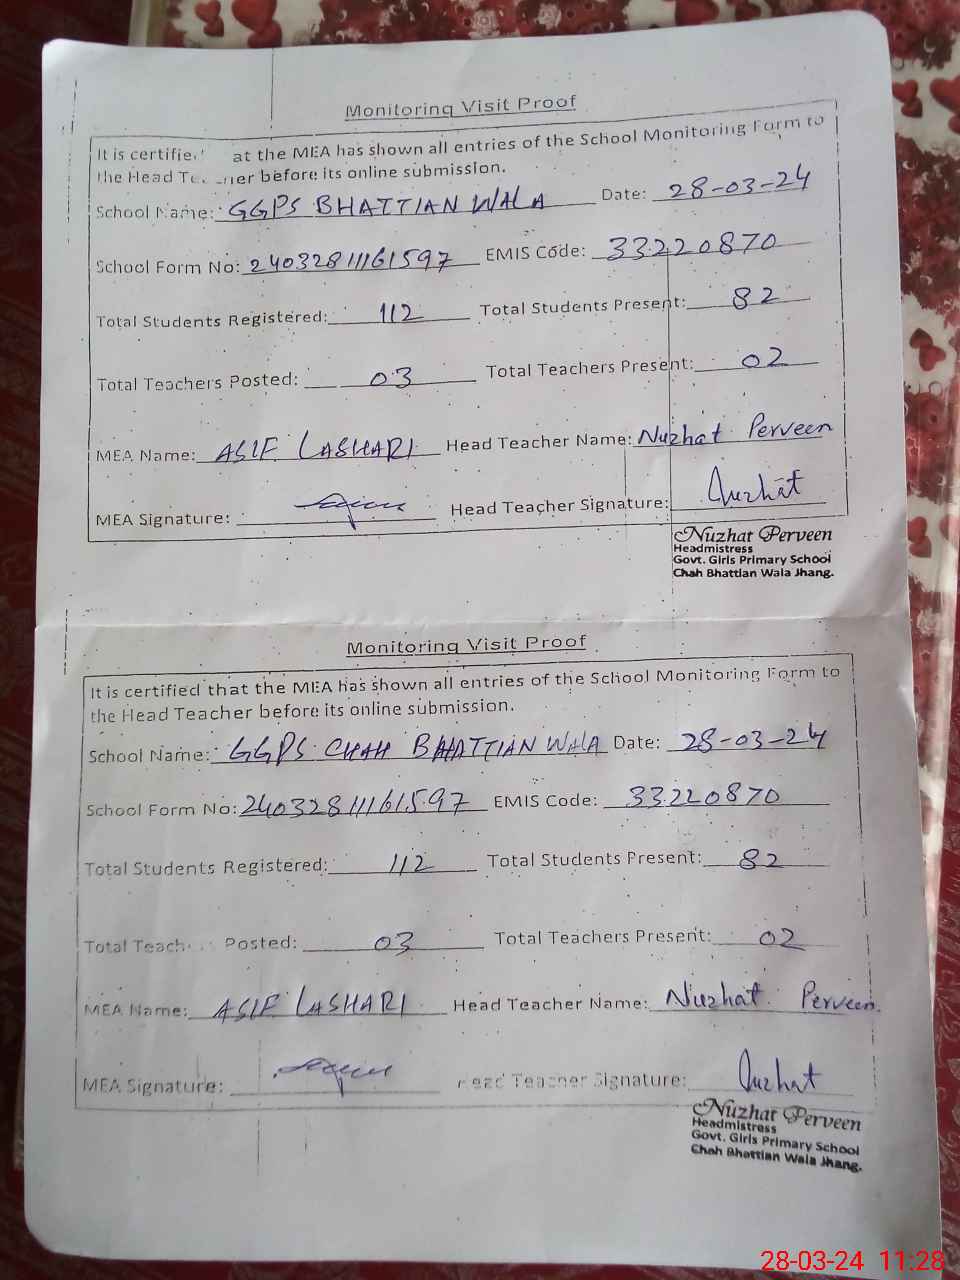 Monitoring Visit Proof
It is certified at the MEA has shown all entries of the School Monitoring Form to
the Head Teacher before its online submission.
School Name: GGPS BHATTIAN WALA Date: 28-03-24
School Form No: 240328111161597 EMIS Code: 33220870
Total Students Registered: 112 Total Students Present: 82
Total Teachers Posted: 03 Total Teachers Present: 02
MEA Name: ASIF LASHARI Head Teacher Name: Nuzhat Perveen
MEA Signature: Head Teacher Signature: Nuzhat
Nuzhat Perveen
Headmistress
Govt. Girls Primary School
Chah Bhattian Wala Jhang.
Monitoring Visit Proof
It is certified that the MEA has shown all entries of the School Monitoring Form to
the Head Teacher before its online submission.
School Name: GGPS CHAH BHATTIAN WALA Date: 28-03-24
School Form No: 240328111161597 EMIS Code: 33220870
Total Students Registered: 112 Total Students Present: 82
Total Teach Posted: 03 Total Teachers Present: 02
MEA Name: ASIF LASHARI Head Teacher Name: Nuzhat Perveen
MEA Signature: Head Teacher Signature: Nuzhat
Nuzhat Perveen
Headmistress
Govt. Girls Primary School
Chah Bhattian Wala Jhang.
28-03-24 11:28